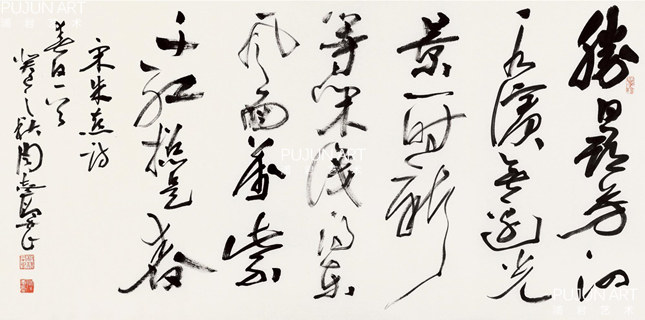 勝日尋芳泗
水濱無邊光
景一時新
等閑識得東
風面萬紫
千紅總是春
宋朱熹詩
春日一首
之秋周慧珺
PUJUN ART
PUJUN ART
PUJUN ART